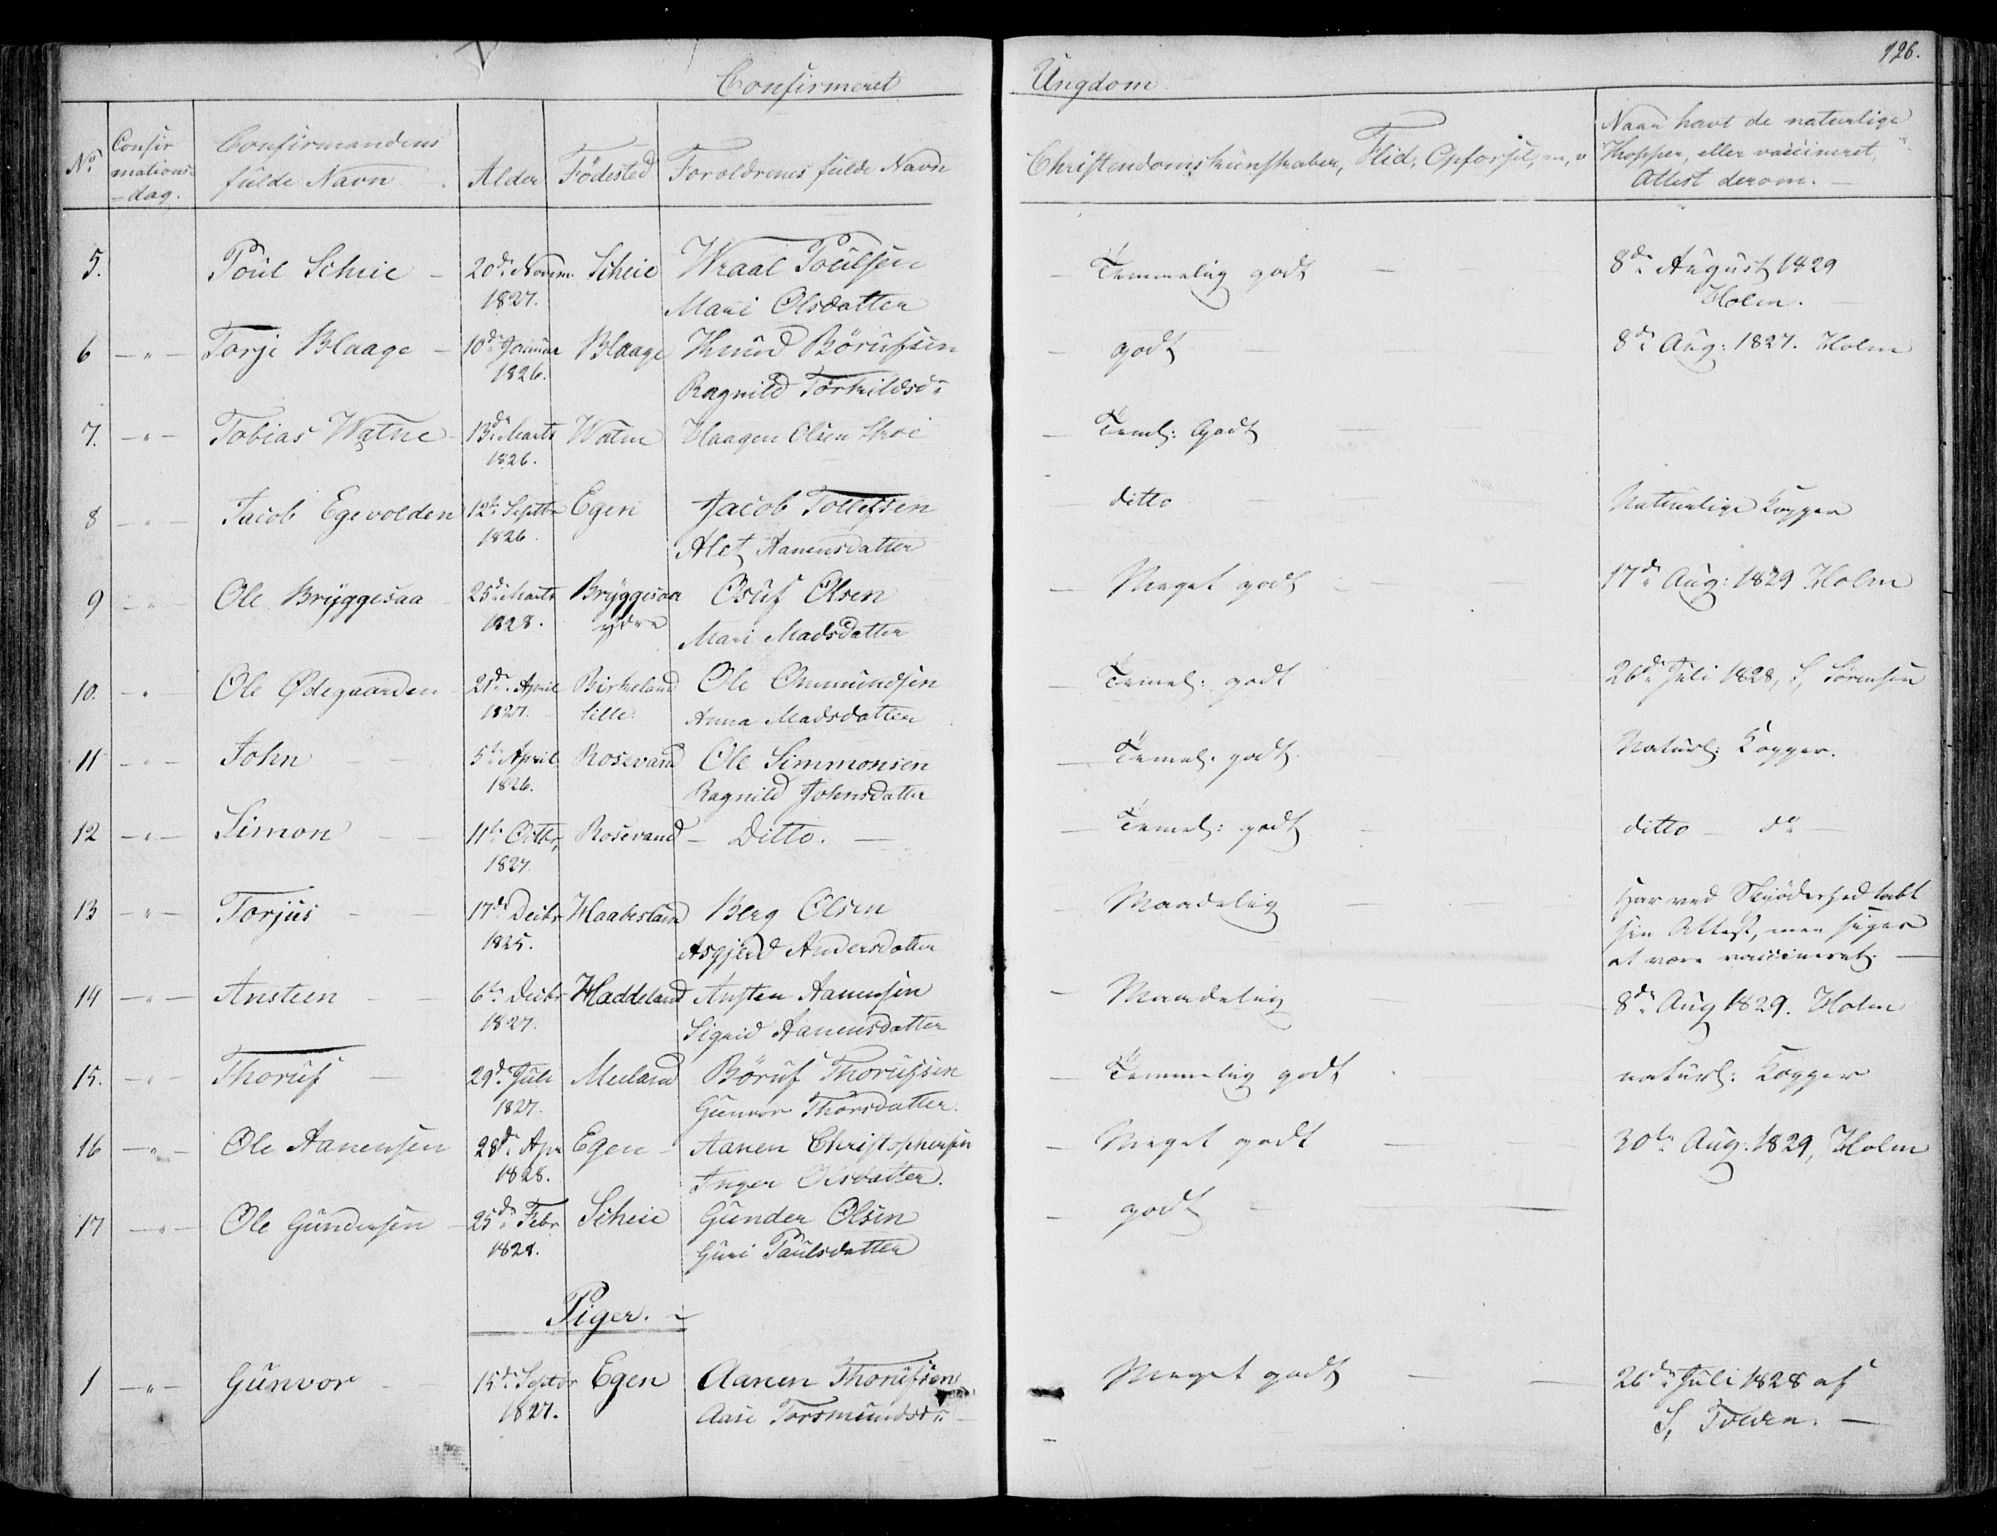 126.
Confirmeret Ungdom
No
Confir
mations-
dag.
Confirmandens
fulde Navn
Alder
Födested
Foroldrenes fulde Navn
Christendomskunskaber, Flid, Opforsel, m, v
Naar havt de naturlige
Kopper, eller vaccineret,
Attest derom. —
5. Poul Scheie — 20de Novem. Scheie Wraal Poulsen — Temmelig godt — 8de August 1829
1827. Mari Olsdatter Holm. —
6 — " — Torje Blaage — 10de Januar Blaage Knud Börufsen — godt — 8de Aug: 1827. Holm
1826. Ragnild Torkildsd:
7. — " — Tobias Watne — 13de Marts Watne Haagen Olsen — Teml: Godt —
1826.
8 — " — Jacob Egevolden 12te Septbr Egen Jacob Tollefsen — ditto — Naturlige Kopper
1826. Alet Aanensdatter
9 — " — Ole Bryggesaa — 25de Marts Bryggesaa Osuf Olsen — Meget godt — 17de Aug: 1829 Holm
1828. ydre Mari Madsdatter
10. " Ole Ødegaarden — 21de April Birkeland Ole Ommundsen — Temel: godt — 26de Juli 1828, S, Sörensen
1827. lille. Anna Madsdatter
11 — " — John — — 5te April Rosevand Ole Simmonsen — Temel. godt — Naturl: Kopper.
1826. Ragnild Johnsdatter
12 — " — Simon — — 11te Octbr, Rosevand — Ditto. — — Temel: godt — ditto — do —
1827.
13 — " — Torjus — — 17de Decbr Haabesland Berg Olsen — Maadelig — Har ved Skjödeshed tabt
1825. Asgjerd Andersdatter sin Attest, men siger
at være vaccineret. —
14 — " — Ansteen — — 6te Decbr Haddeland Ansten Aanensen — Maadelig — 8de Aug 1829. Holm
1827. Sigrid Aanensdatter
15. — " — Thoruf — 29de Juli Meeland Böruf Thorufsen — Temmelig godt — naturl: Kopper
1827. Gunvor Thorsdatter.
16 — " — Ole Aanensen 28de Apr Egen — Aanen Christophersen — Meget godt — 30te Aug. 1829, Holm
1828. Inger Olsdatter.
17 — " — Ole Gundersen — 25de Febr Scheie Gunder Olsen — godt — —
1828. Guri Paulsdatter
Piger. —
1 — " — Gunvor — 15de Septbr Egen Aanen Thorufsen — Meget godt — — 26de Juli 1828 af
1827. Aase Torsmundsd: — S, Tveden. —